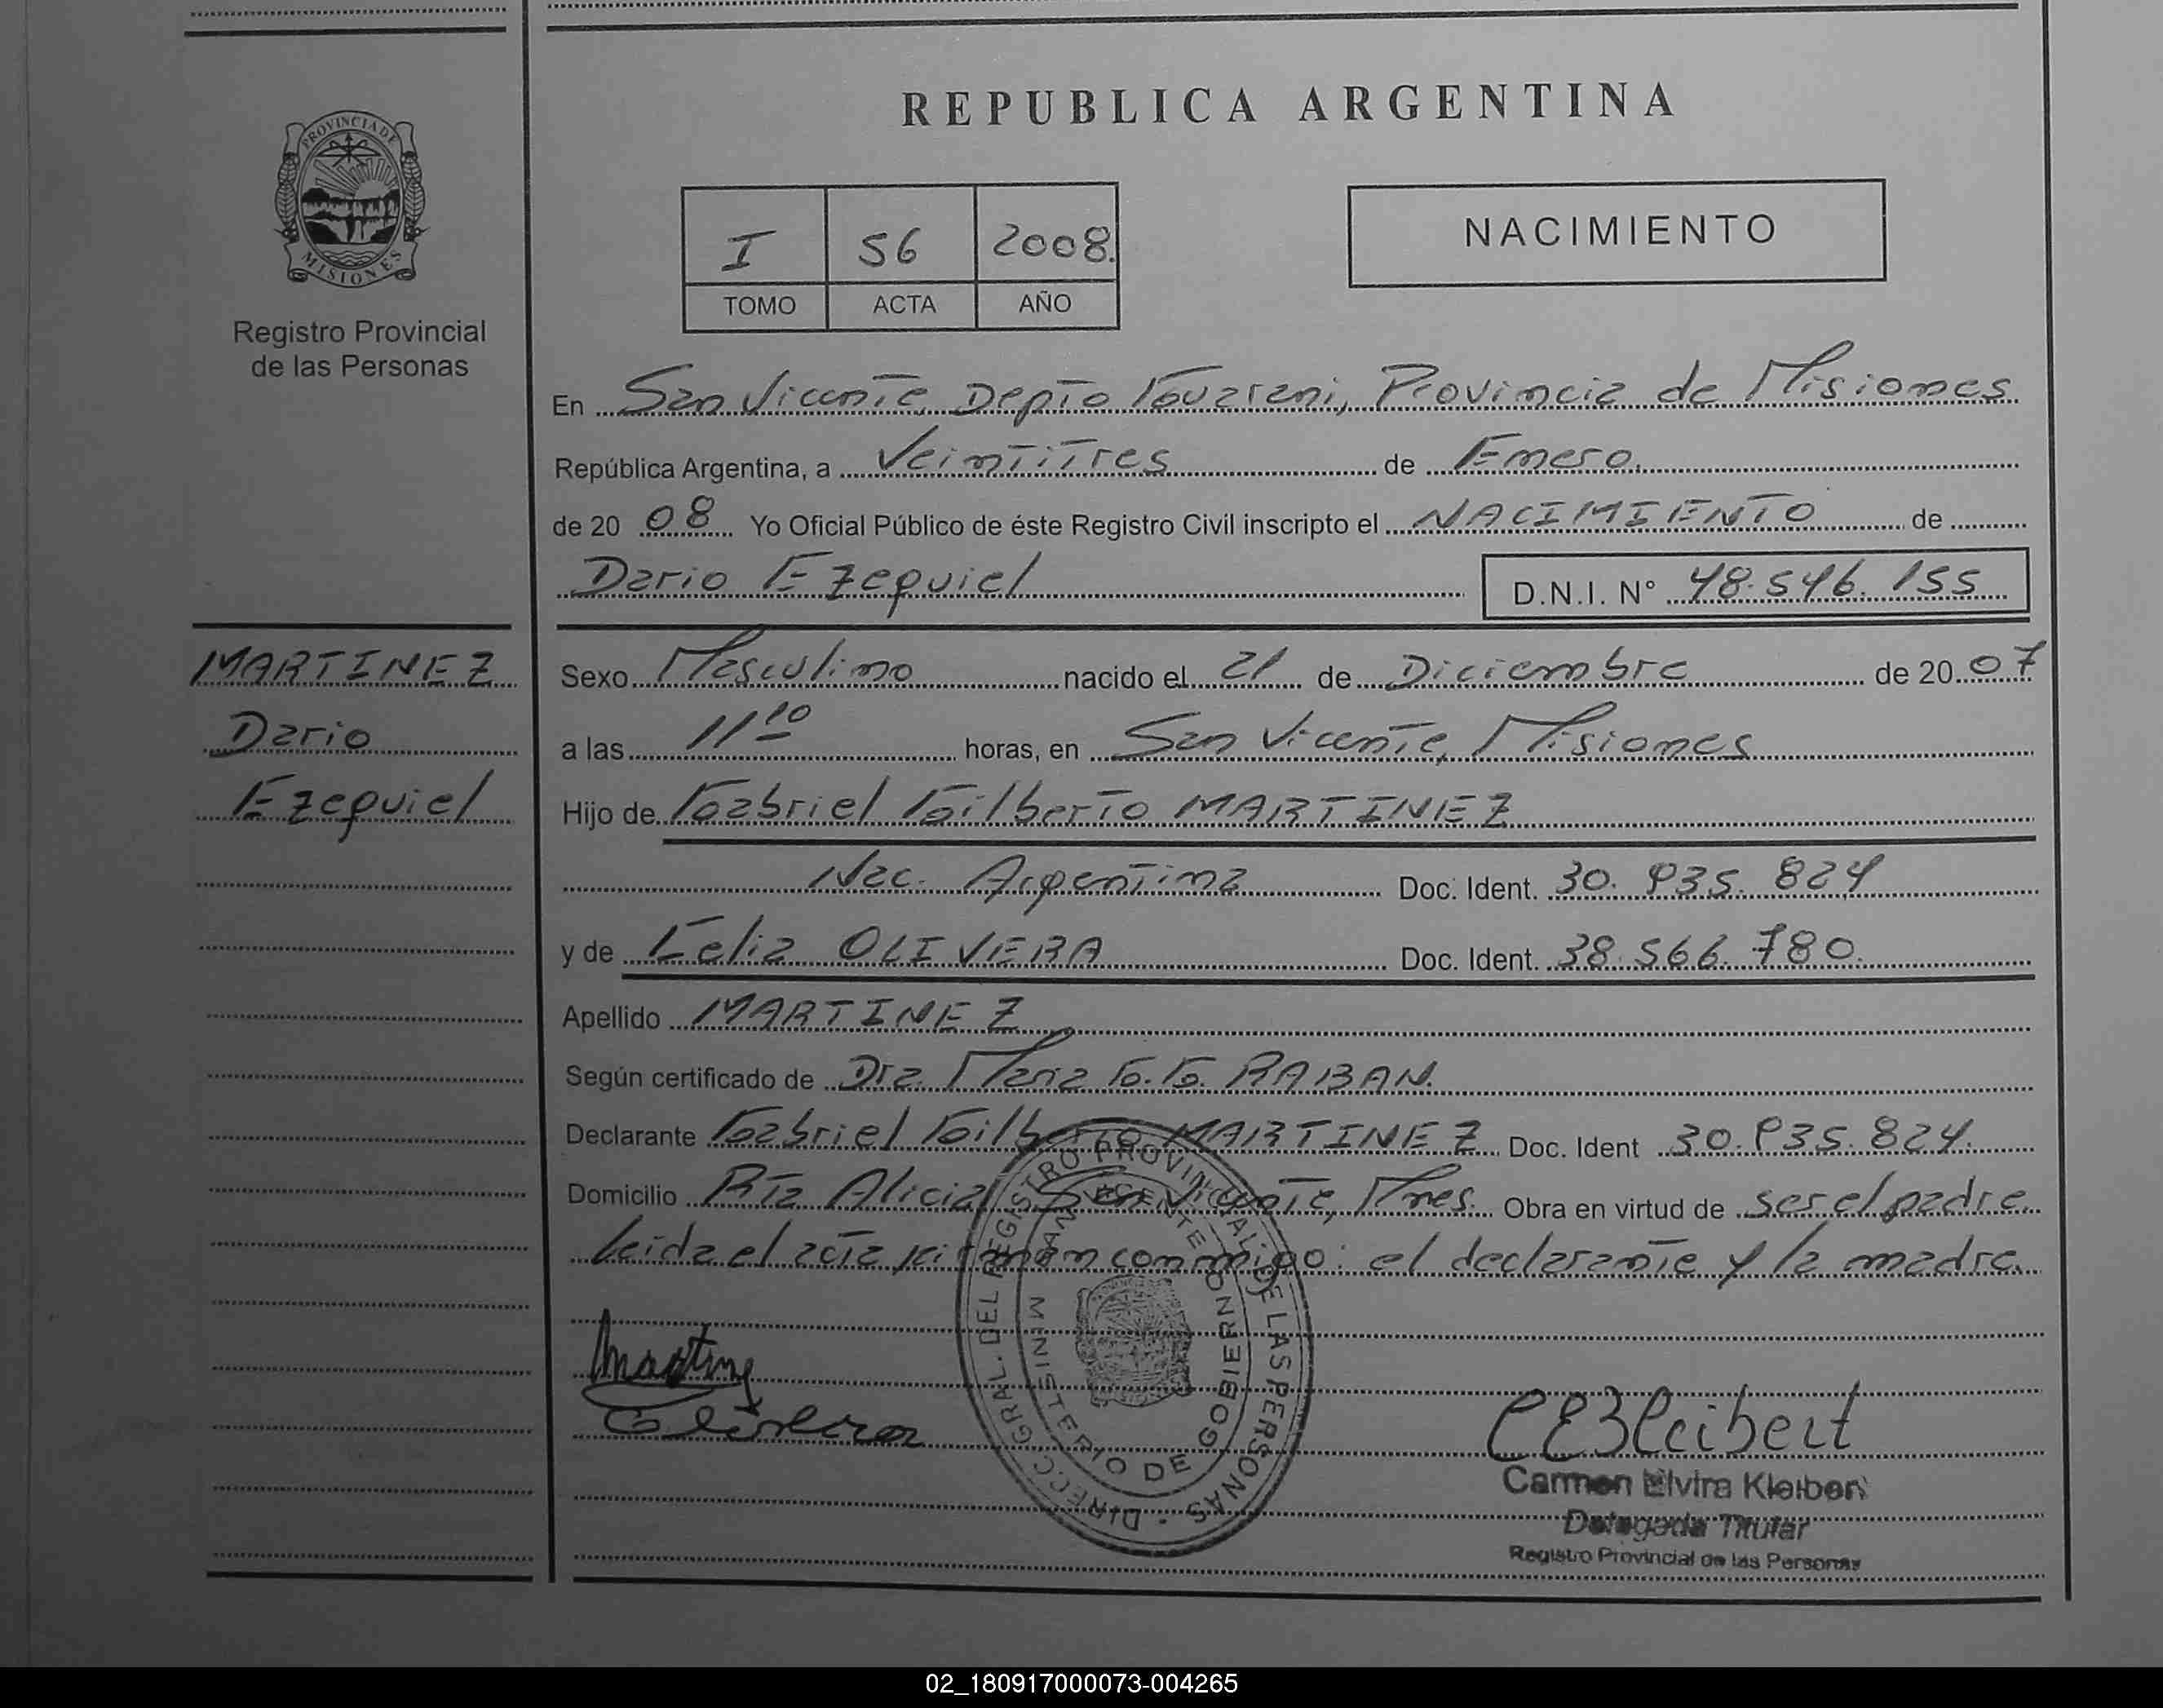 REPUBLICA ARGENTINA
PROVINCIA DE
MISIONES
Registro Provincial
de las Personas
I 56 2008.
TOMO ACTA AÑO
NACIMIENTO
En San Vicente, Depto Guarani, Provincia de Misiones
República Argentina, a Veintitres de Enero.
de 20 08 Yo Oficial Público de éste Registro Civil inscripto el NACIMIENTO de
Dario Ezequiel D.N.I. N° 48.546.155
MARTINEZ
Dario
Ezequiel
Sexo Masculino nacido el 21 de Diciembre de 20 07
a las 11 10 horas, en San Vicente, Misiones
Hijo de Gabriel Gilberto MARTINEZ
Nac. Argentina Doc. Ident. 30.935.824
y de Celia OLIVERA Doc. Ident. 38.566.780.
Apellido MARTINEZ
Según certificado de Dra. Maria G.G. RABAN.
Declarante Gabriel Gilberto MARTINEZ Doc. Ident 30.935.824.
Domicilio Pta Alicia San Vicente, Mnes. Obra en virtud de ser el padre.
Leida el acta firman conmigo: el declarante y la madre.
DIRECC. GRAL. DEL REGISTRO PROVINCIAL DE LAS PERSONAS
MINISTERIO DE GOBIERNO
SAN VICENTE
Carmen Elvira Kleibert
Delegada Titular
Registro Provincial de las Personas
02_180917000073-004265